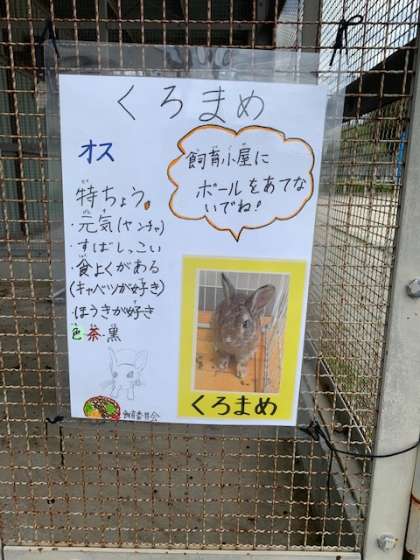 くろまめ
オス
飼育小屋に
ボールをあてな
いでね!
特ちょう
・元気(ヤンチャ)
・すばしっこい
・食よくがある
(キャベツが好き)
・ほうきが好き
色 茶・黒
くろまめ
飼育委員会